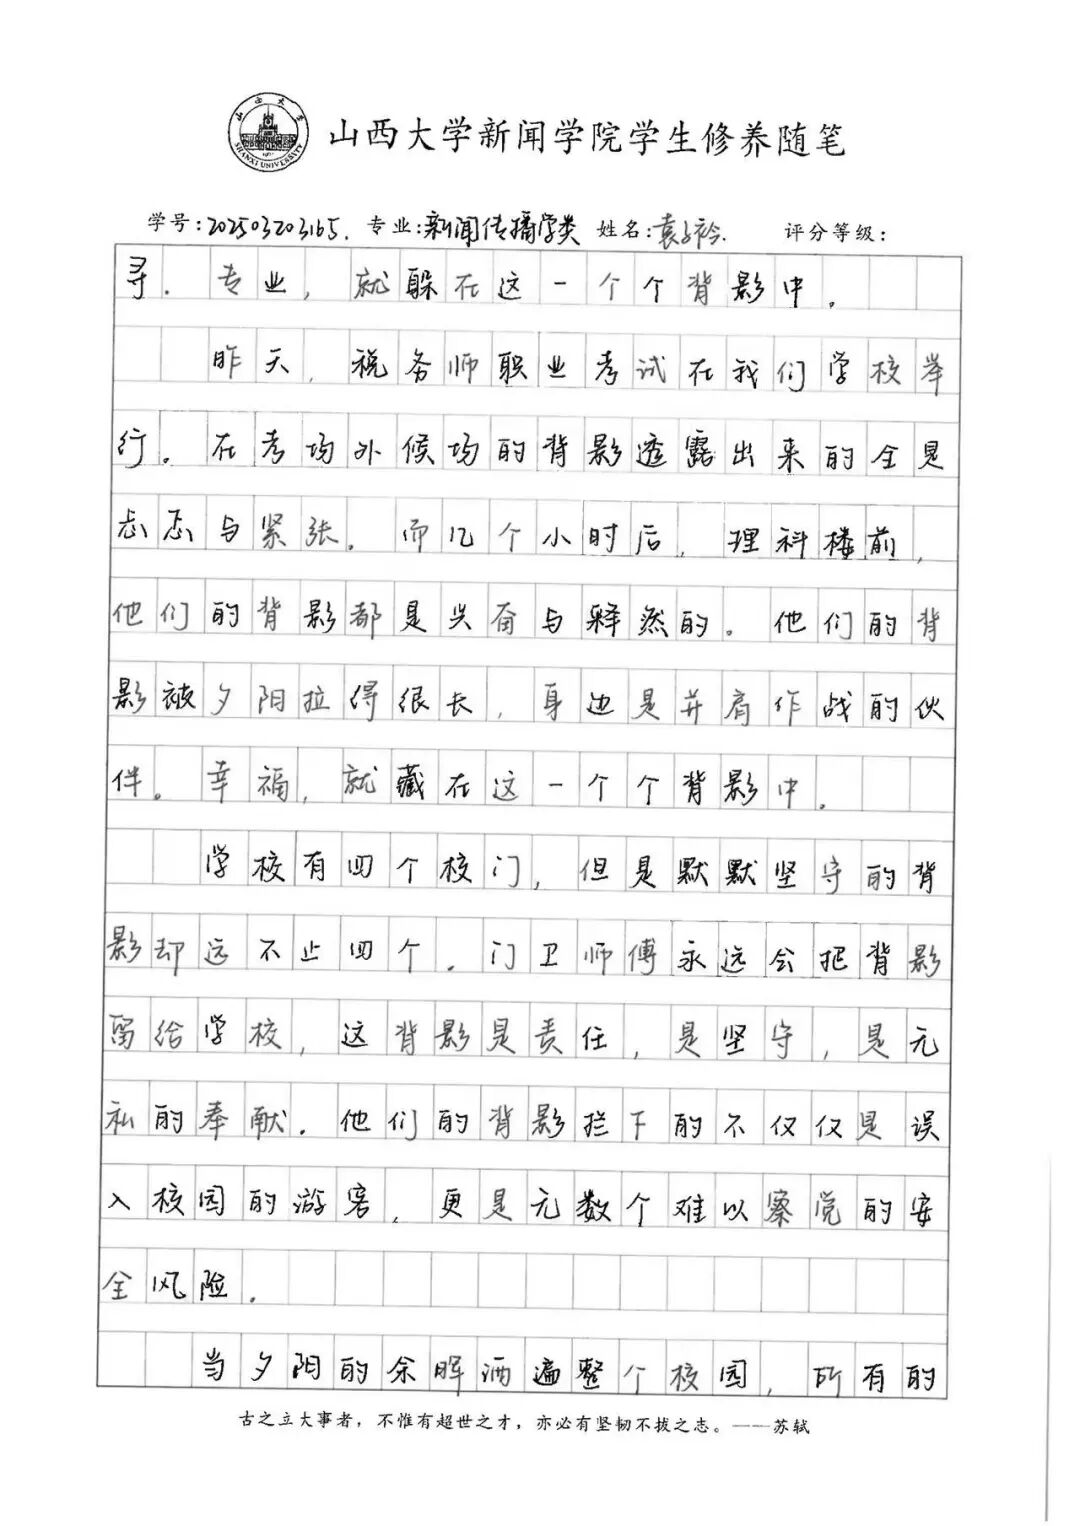 山西大学
SHANXI UNIVERSITY
山西大学新闻学院学生修养随笔
学号:202503203165. 专业:新闻传播学类 姓名:袁子衿. 评分等级:
寻。专业，就躲在这一个个背影中。
昨天，税务师职业考试在我们学校举
行。在考场外候场的背影透露出来的全是
忐忑与紧张。而几个小时后，理科楼前，
他们的背影都是兴奋与释然的。他们的背
影被夕阳拉得很长，身边是并肩作战的伙
伴。幸福，就藏在这一个个背影中。
学校有四个校门，但是默默坚守的背
影却远不止四个。门卫师傅永远会把背影
留给学校，这背影是责任，是坚守，是无
私的奉献。他们的背影拦下的不仅仅是误
入校园的游客，更是无数个难以察觉的安
全风险。
当夕阳的余晖洒遍整个校园，所有的
古之立大事者，不惟有超世之才，亦必有坚韧不拔之志。——苏轼